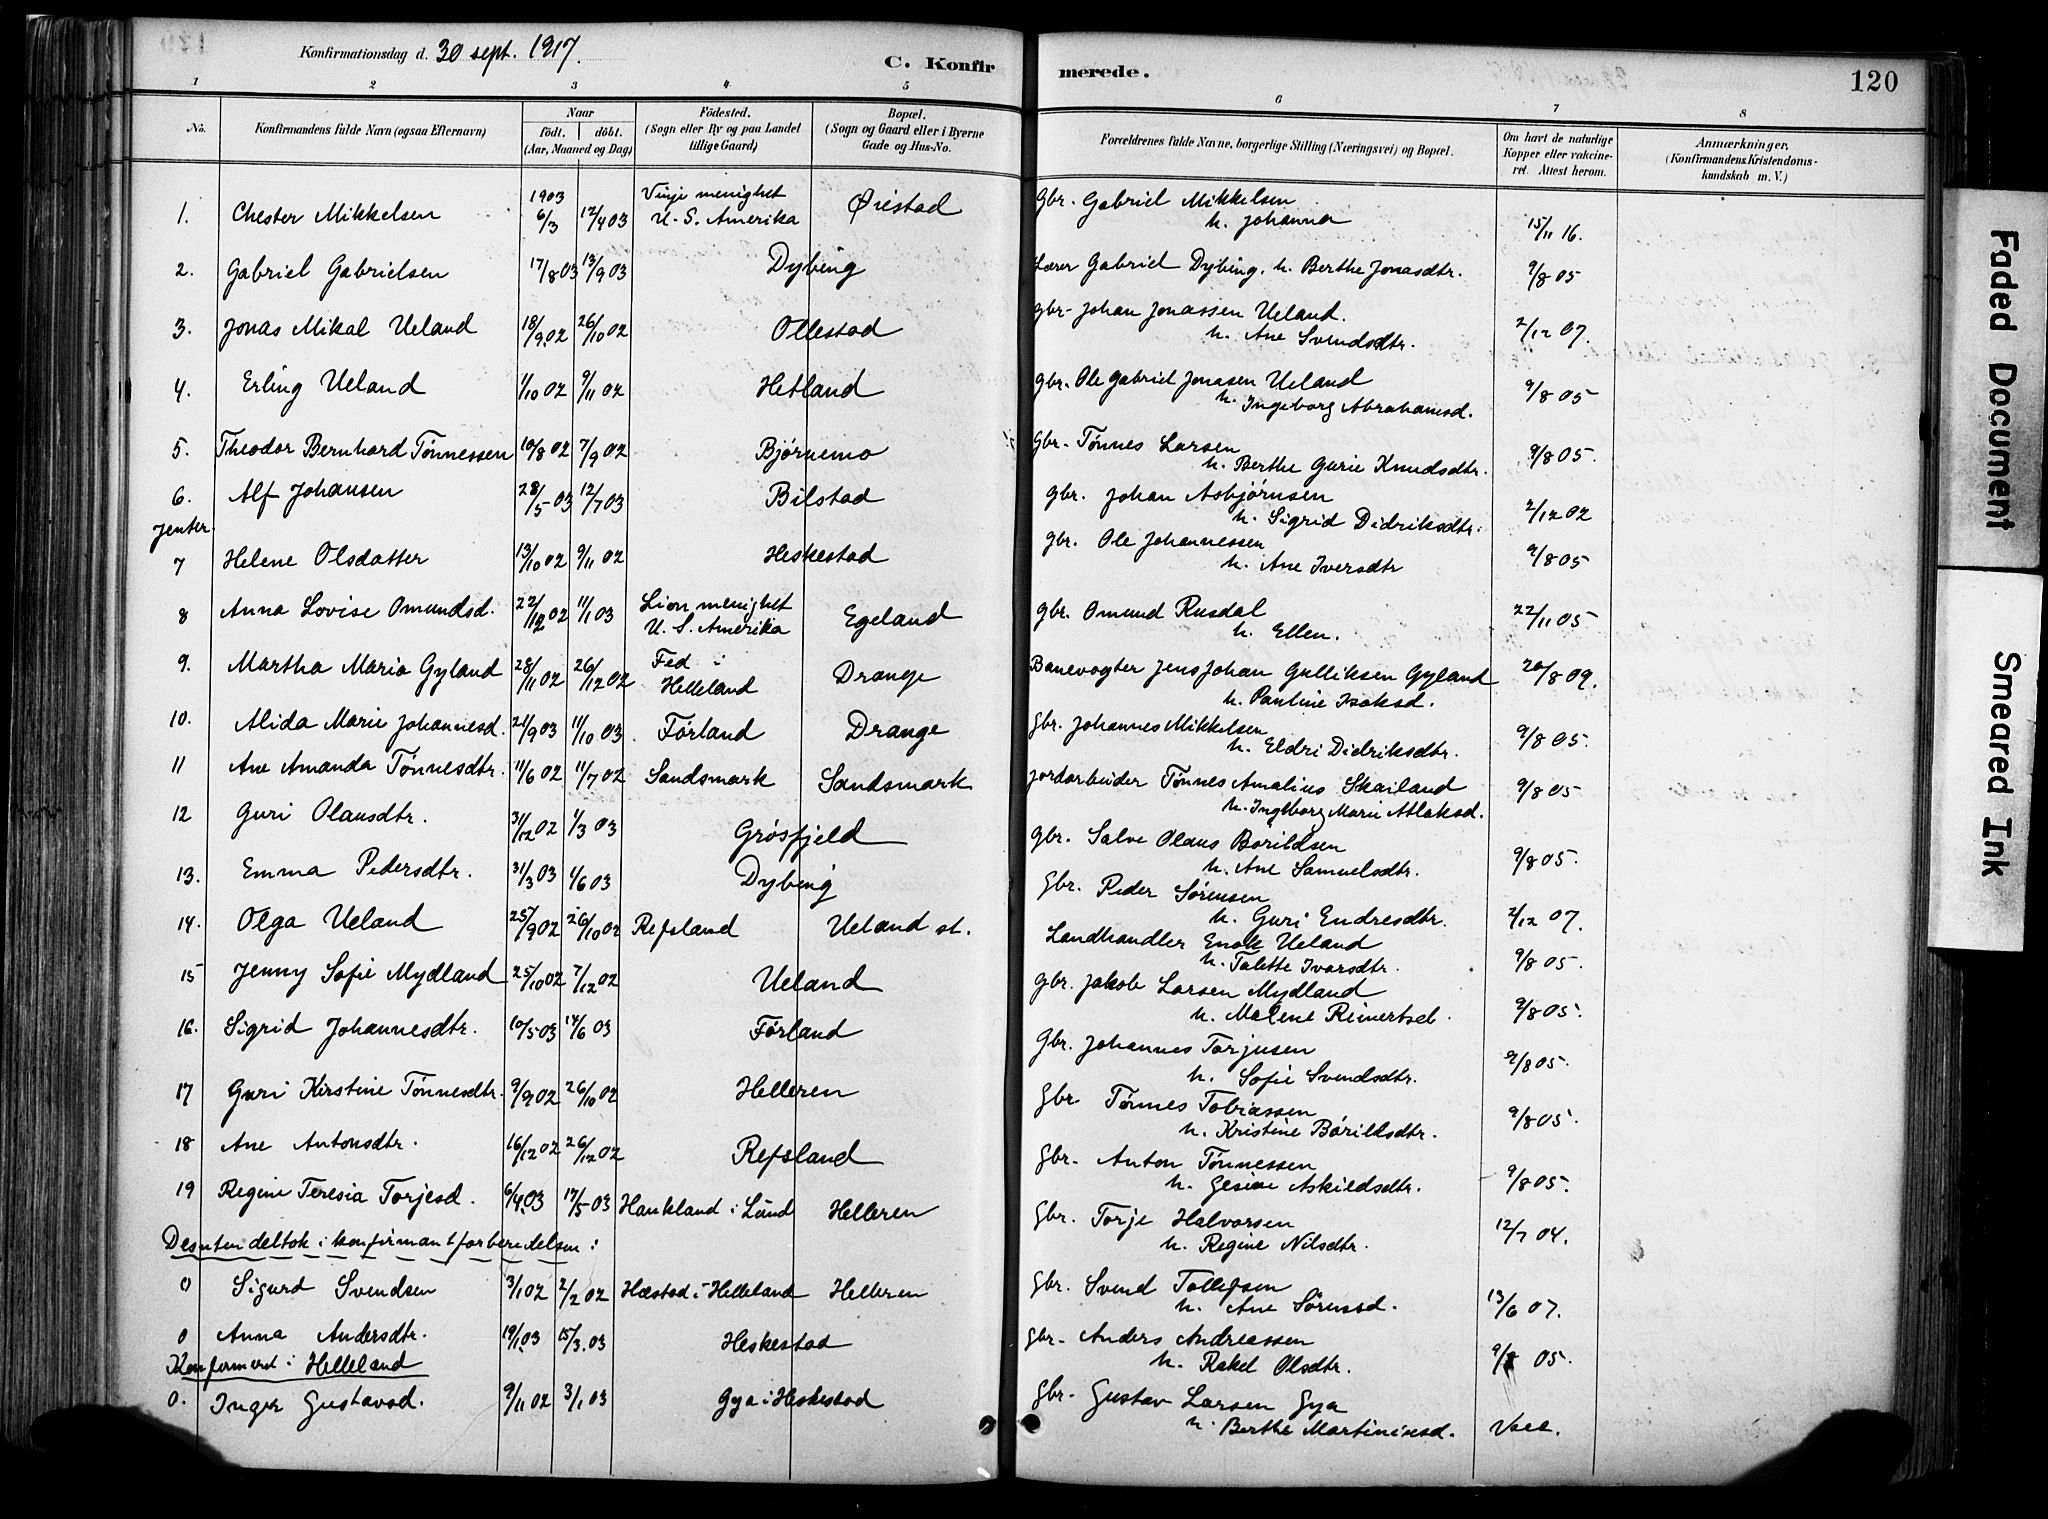 Konfirmationsdag d. 30 sept. 1917.
C. Konfirmerede.
120
1 2 3 4 5 6 7 8
No. Konfirmandens fulde Navn (ogsaa Efternavn) Naar födt. döbt. (Aar, Maaned og Dag) Födested. (Sogn eller By og paa Landet tillige Gaard) Bopæl. (Sogn og Gaard eller i Byerne Gade og Hus-No. Forældrenes fulde Navne, borgerlige Stilling (Næringsvei) og Bopæl. Om havt de naturlige Kopper eller vakcineret. Attest herom. Anmærkninger, (Konfirmandens Kristendomskundskab m. V.)
1. Chester Mikkelsen 1903 6/3 12/4 03 Vinje menighet U. S. Amerika Øiestad Gbr. Gabriel Mikkelsen h. Johanna 15/11 16.
2. Gabriel Gabrielsen 17/8 03 13/9 03 Dybing Lærer Gabriel Dybing, h. Berthe Jonasdtr. 9/8 05
3. Jonas Mikal Ueland 18/9 02 26/10 02 Ollestad gbr. Johan Jonassen Ueland. h. Ane Svendsdtr. 2/12 07.
4. Erling Ueland 1/10 02 9/11 02 Hetland gbr. Ole Gabriel Jonasen Ueland h. Ingeborg Abrahamsd. 9/8 05
5. Theodor Bernhard Tønnessen 10/8 02 7/9 02 Bjørnemo gbr. Tønnes Larsen h. Berthe Gurie Knudsdtr. 9/8 05.
6. Alf Johansen 28/5 03 12/7 03 Bilstad gbr. Johan Asbjørnsen h. Sigrid Didriksdtr. 2/12 02
Jenter.
7 Helene Olsdatter 13/10 02 9/11 02 Heskestad gbr. Ole Johannessen h. Ane Iversdtr 9/8 05
8 Anna Lovise Omundsd. 22/12 02 11/1 03 Lion menighet U. S. Amerika Egeland gbr. Omund Rusdal h. Ellen. 22/11 05
9. Martha Maria Gyland 28/11 02 26/12 02 Fed i Helleland Drange Banevogter Jens Johan Gulliksen Gyland h. Pauline Isaksd. 20/8 09.
10. Alida Marie Johannesd. 21/9 03 11/10 03 Førland Drange Gbr. Johannes Mikkelsen h. Eldri Didriksdtr. 9/8 05.
11 Ane Amanda Tønnesdtr. 11/6 02 11/7 02 Sandsmark Sandsmark Jordarbeider Tønnes Amalius Skailand h. Ingeborg Marie Atlaksd. 9/8 05
12 Guri Olausdtr. 31/12 02 1/3 03 Grøsfjeld gbr. Salve Olaus Borildsen h. Ane Samuelsdtr. 9/8 05.
13. Emma Pedersdtr. 31/3 03 1/6 03 Dybing Gbr. Peder Sørensen h. Guri Endresdtr. 2/12 07.
14. Olga Ueland 25/9 02 26/10 02 Refsland Ueland st. Landhandler Enok Ueland h. Talette Ivarsdtr. 9/8 05.
15 Jenny Sofie Mydland 25/10 02 7/12 02 Ueland gbr. Jakob Larsen Mydland h. Malene Reinertsd. 9/8 05.
16. Sigrid Johannesdtr. 10/5 03 14/6 03 Førland Gbr. Johannes Torjusen h. Sofie Svendsdtr. 9/8 05.
17 Guri Kirstine Tønnesdtr. 9/9 02 26/10 02 Helleren Gbr Tønnes Tobiassen h. Kristine Børildsdtr. 9/8 05.
18 Ane Antonsdtr. 16/12 02 26/12 02 Refsland Gbr. Anton Tønnessen h. Gesine Askildsdtr. 9/8 05.
19 Regine Teresia Torjesd. 6/4 03 17/5 03 Haukland i Lund Helleren Gbr. Torje Halvorsen h. Regine Nilsdtr. 12/7 04.
Desuten deltok i konfirmantforberedelsen:
0 Sigurd Svendsen 3/1 02 2/2 02 Hæstad i Helleland Helleren Gbr. Svend Tollefsen h. Ane Sørensd. 13/6 07.
0 Anna Andersdtr. 19/1 03 15/3 03 Heskestad Gbr. Anders Andreassen h. Rakel Olsdtr. 9/8 05.
Konfirmert i Helleland
0. Inger Gustavsd. 9/11 02 3/1 03 Gya i Heskestad Gbr. Gustav Larsen Gya h. Berthe Martinisesd. Vacc.
Faded Document
Smeared Ink